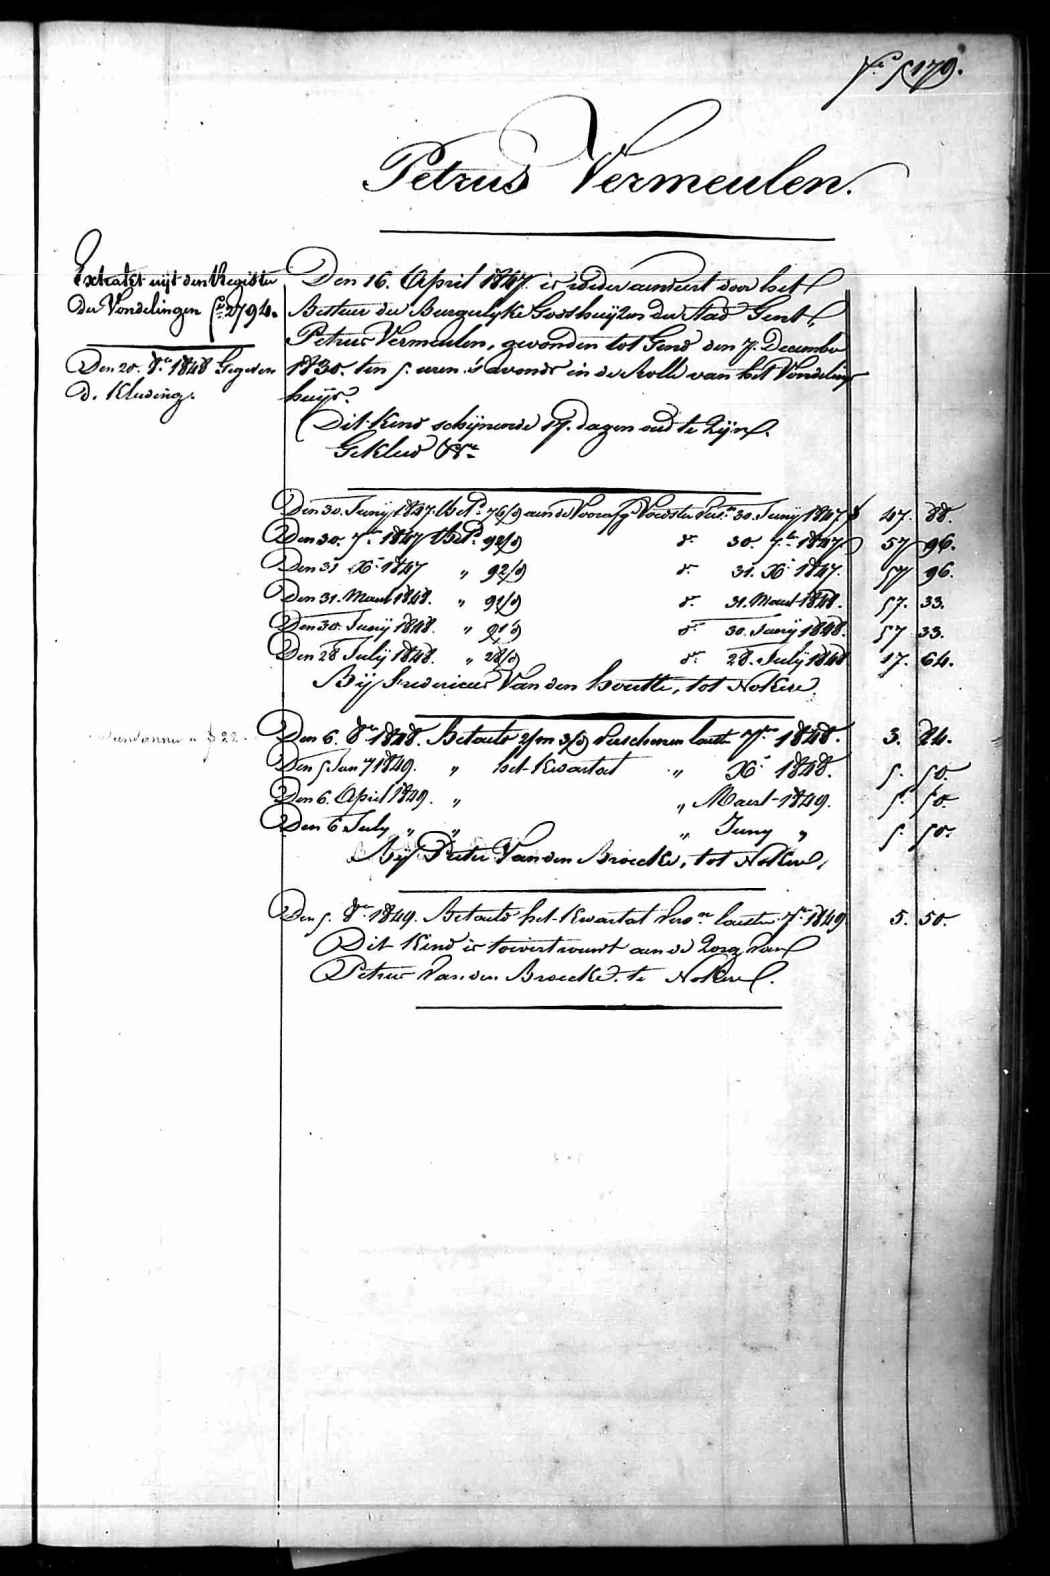 Petrus Vermeulen.
Extraict uijt den Register
der Vondelingen fo. 2794.
Den 20. 8re 1848 Gegeven
d. Kleeding.
Den 16. April 1847. is weder aenveirt door het
Bestuer der Burgerlyke Godshuijzen der Stad Gent,
Petrus Vermeulen, gevonden tot Gend den 7. December
1830. ten 5. uren 's avonds in de Rolle van het Vondeling
huijs.
Dit Kind schijnende 17. dagen oud te zijn.
Gekleed &a.
Den 30. Junij 1847. Betd. 76/d aen de Voorafg. Voedster Vers. 30. Junij 1847 47. 88.
Den 30. 7re 1847 Betd. 92/d do 30. 7re 1847. 57 96.
Den 31 Xe 1847 " 92/d do 31. Xe 1847. 57 96.
Den 31. Maert 1848. " 91/d do 31. Maert 1848. 57. 33.
Den 30. Junij 1848. " 91/d do 30. Junij 1848. 57 33.
Den 28 Julij 1848. " 28/d do 28. Julij 1848 17. 64.
Bij Fredericus Van den houtte, tot Nokere.
Den 6. 8re 1848. Betaeld 2/m 3/d Verschenen laetst 7re 1848. 3. 24.
Den 5 Jan 7 1849. " het Kwartael " Xe 1848. 5. 50.
Den 6. April 1849. " " Maert 1849. 5. 50.
Den 6 July " " " Juny " 5. 50.
Bij Pieter Van den Broecke, tot Nokere,
Den 5. 8re 1849. Betaeld het Kwartael Vers.en laetst. 7re 1849 5. 50.
Dit Kind is toevertrouwt aen de zorg van
Petrus Van den Broecke. te Nokere.